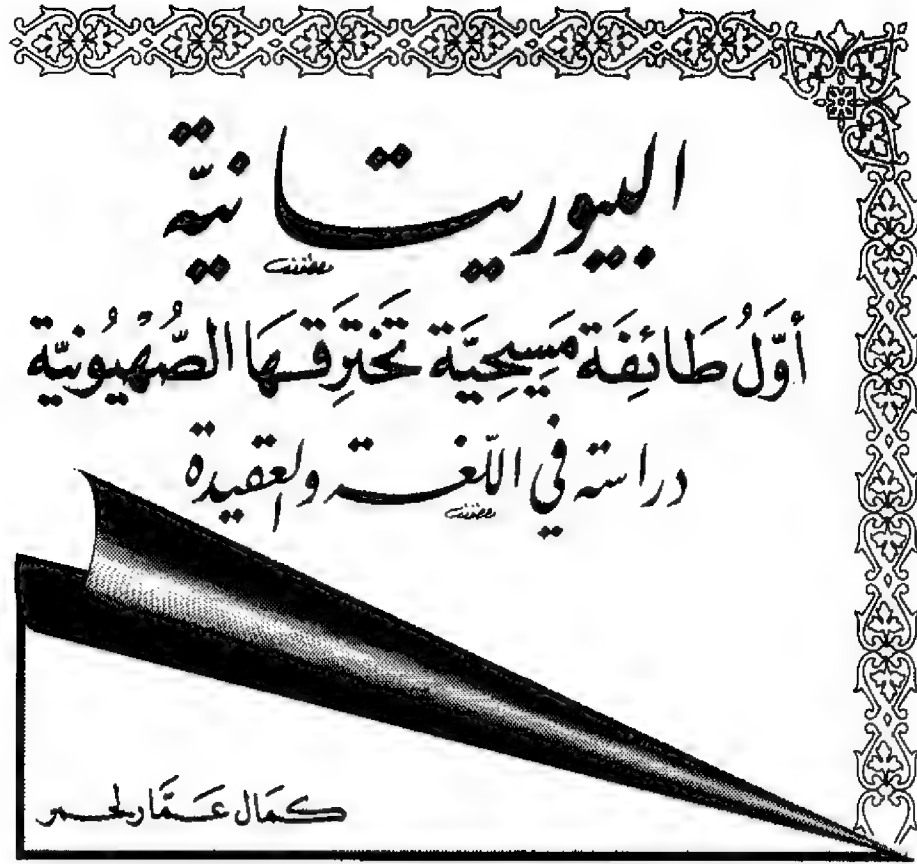 البيوريتانيّة
أوَّلُ طَائِفَة مَسِيحِيَّة تَخْتَرِقُهَا الصُّهْيُونيّة
دراسة في اللّغة والعقيدة
كمَال عَمَّار